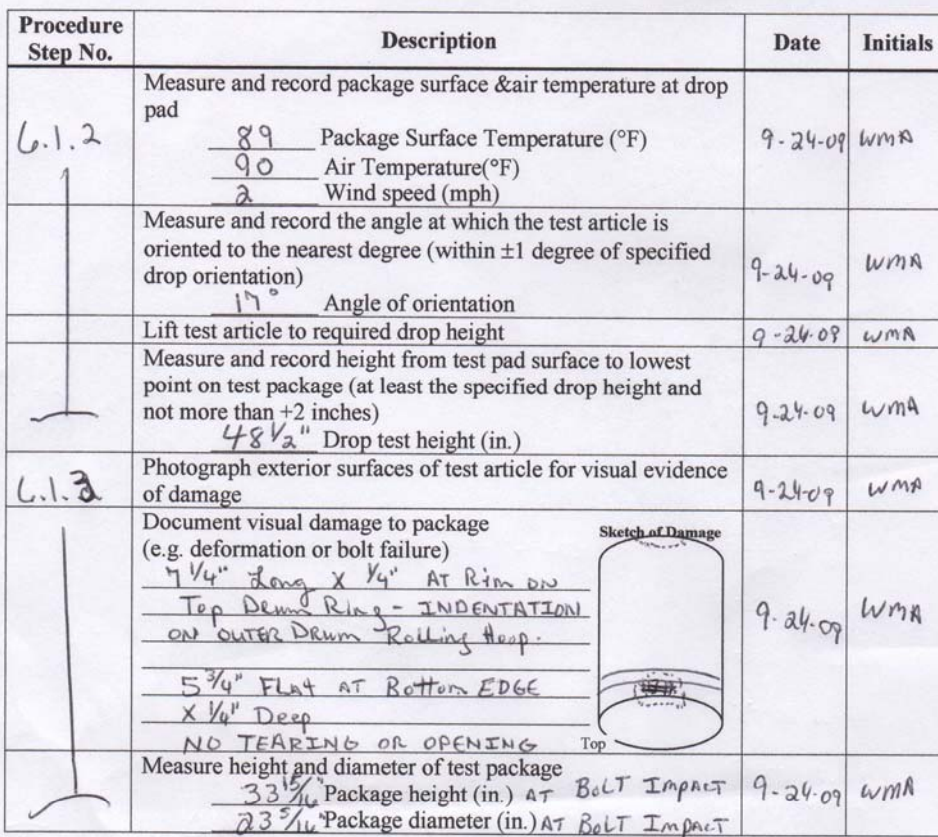 Procedure Step No. Description Date Initials
Measure and record package surface &air temperature at drop
pad
6.1.2 89 Package Surface Temperature (°F) 9-24-09 WMA
90 Air Temperature(°F)
2 Wind speed (mph)
Measure and record the angle at which the test article is
oriented to the nearest degree (within ±1 degree of specified
drop orientation) 9-24-09 WMA
17° Angle of orientation
Lift test article to required drop height 9-24-09 WMA
Measure and record height from test pad surface to lowest
point on test package (at least the specified drop height and
not more than +2 inches) 9-24-09 WMA
48 1/2" Drop test height (in.)
6.1.3 Photograph exterior surfaces of test article for visual evidence
of damage 9-24-09 WMA
Document visual damage to package
(e.g. deformation or bolt failure) Sketch of Damage
7 1/4" Long X 1/4" AT Rim ON
Top Drum Ring - INDENTATION
ON OUTER DRum Rolling Hoop. 9-24-09 WMA
5 3/4" FLAT AT Bottom EDGE
X 1/4" Deep
NO TEARING OR OPENING Top
Measure height and diameter of test package
33 15/16" Package height (in.) AT BOLT IMPACT 9-24-09 WMA
23 5/16" Package diameter (in.) AT BOLT IMPACT